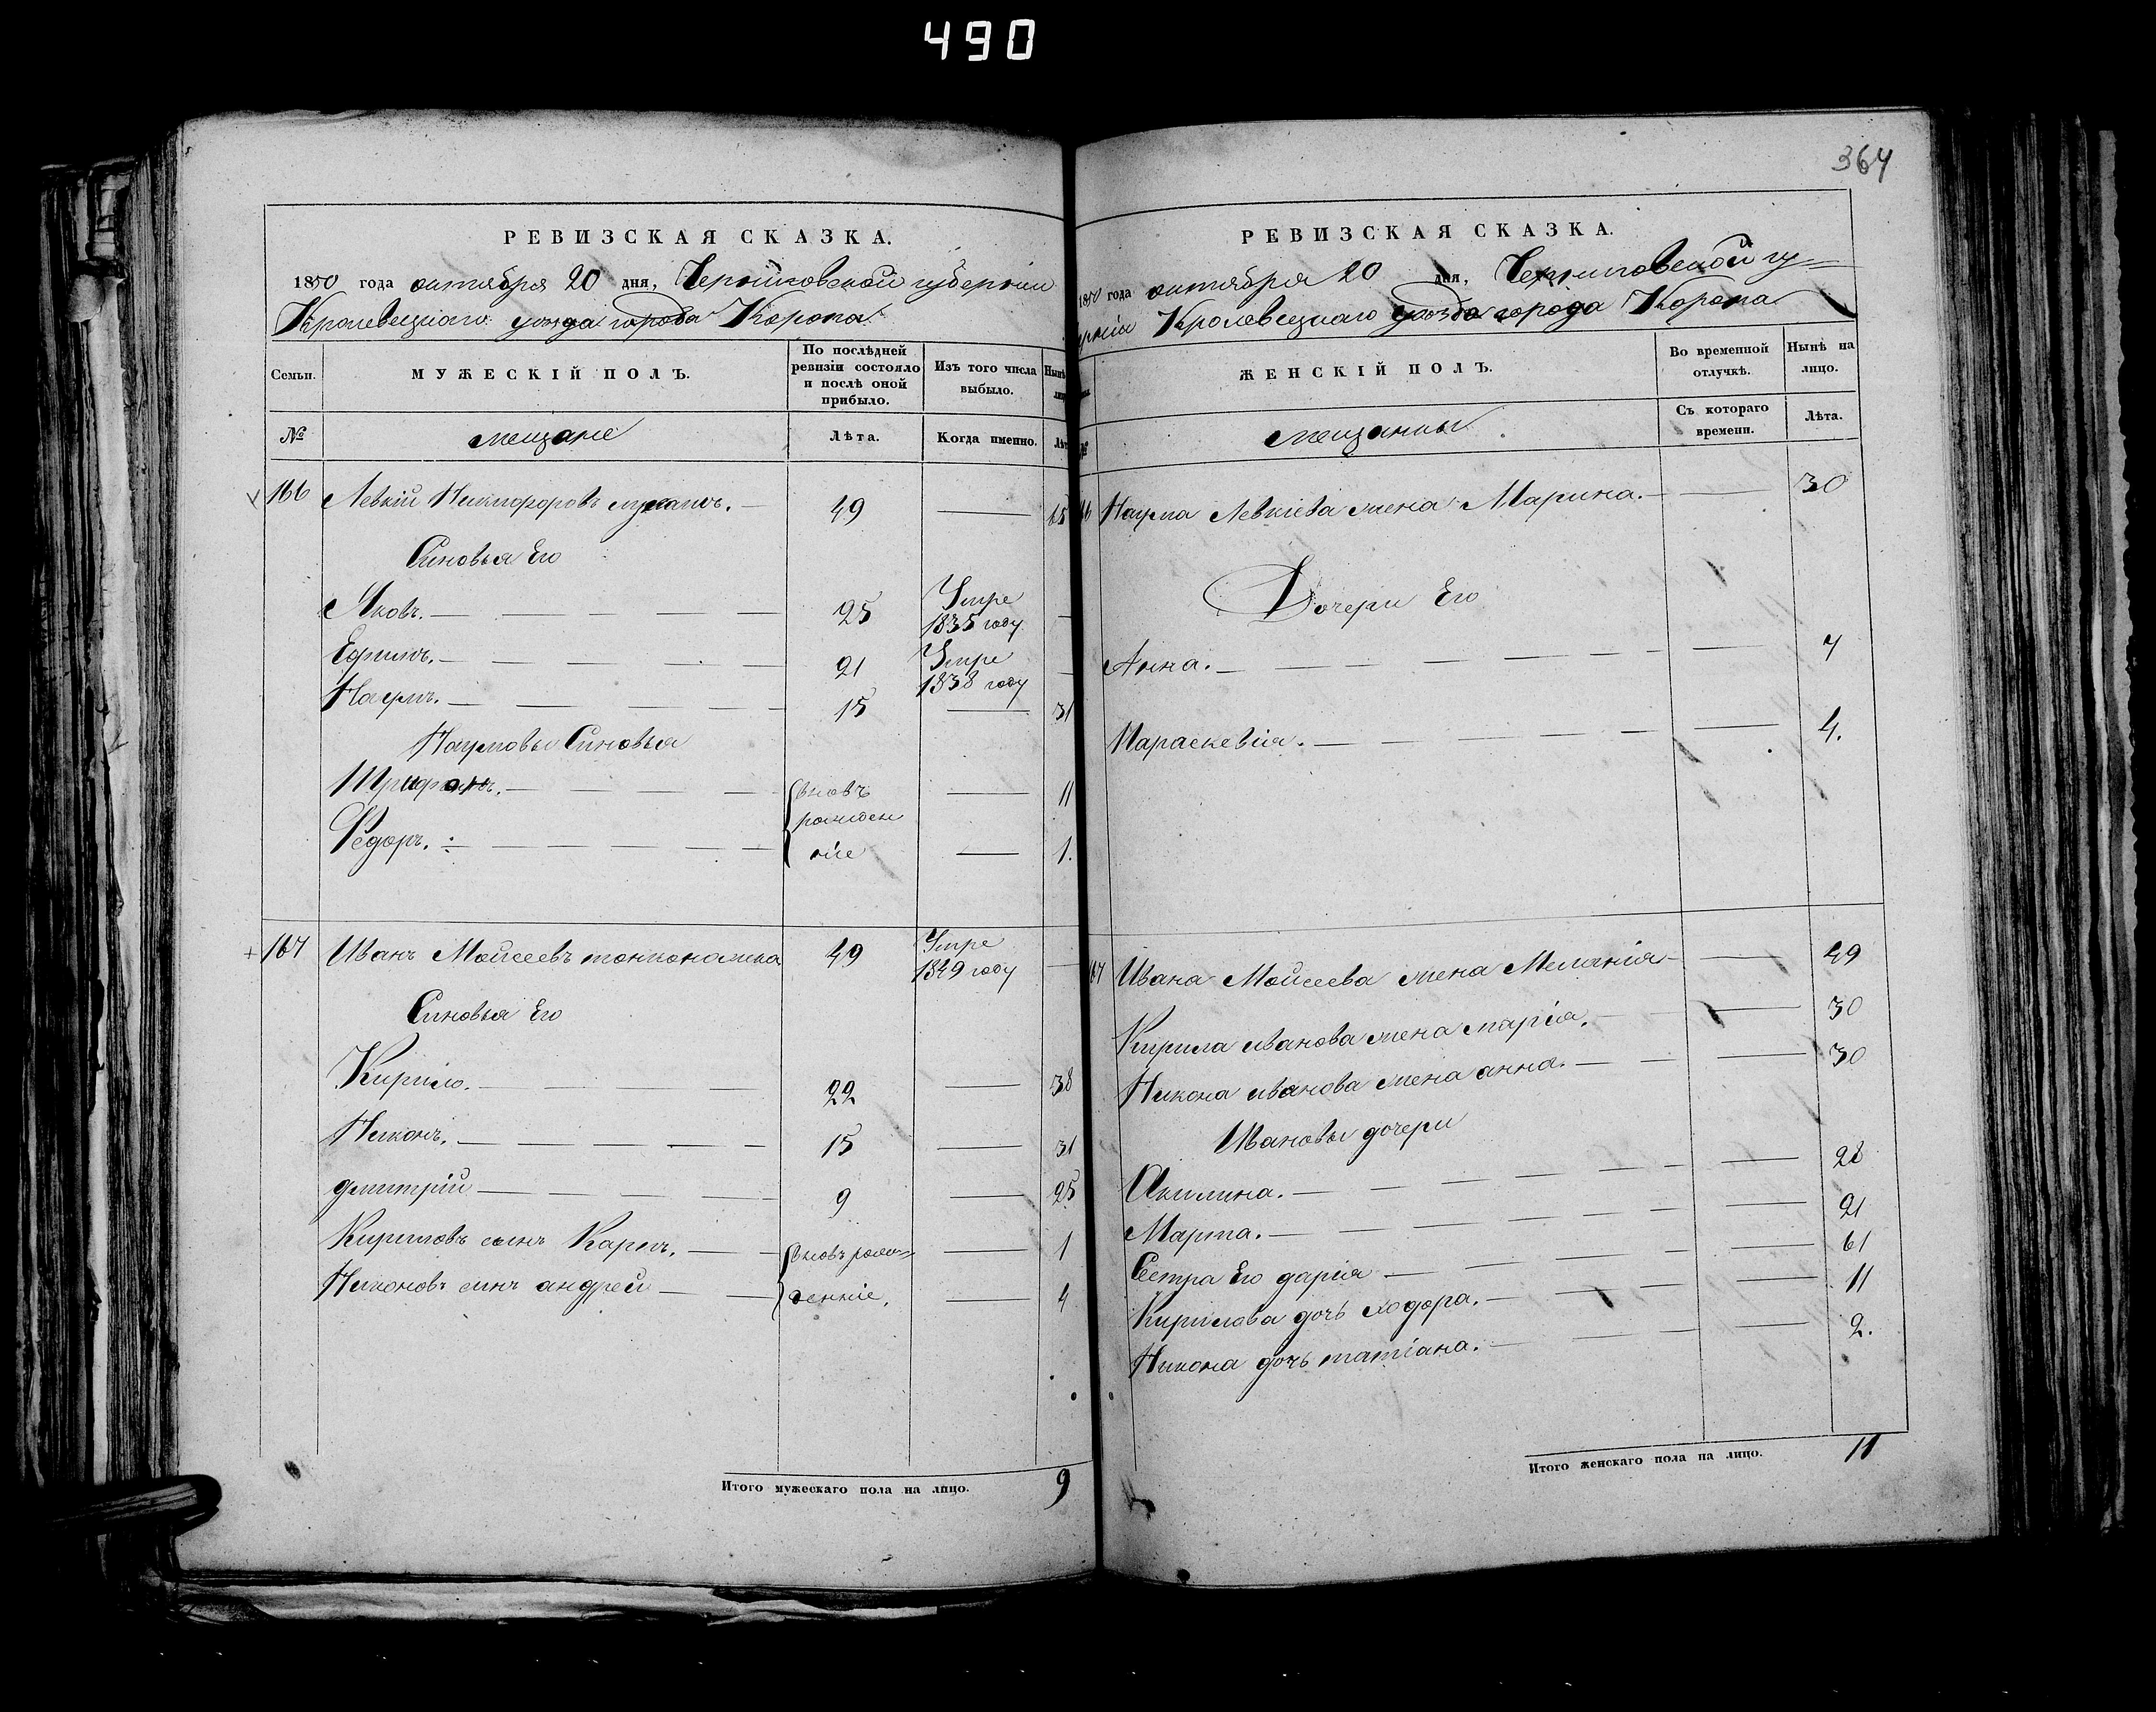 490
364
РЕВИЗСКАЯ СКАЗКА.
1850 года октября 20 дня, Черниговской губернии
Кролевецкаго уезда города Коропа
Семьи.
МУЖЕСКІЙ ПОЛЪ.
По послѣдней ревизіи состояло и послѣ оной прибыло.
Изъ того числа выбыло.
Нынѣ
№
мещане
Лѣта.
Когда именно.
166 Левкій Никифоровъ 49 — 65
Синовья Его
Яковъ. — 25 Умре 1835 году —
Ефимъ. — 21 Умре 1838 году —
Наумъ. — 15 — 31
Наумовы Синовья
Трифонъ. — вновь — 11
рожден
Федоръ. — ніе — 1.
167 Иванъ Мойсеевъ 49 Умре 1849 году —
Синовья Его
Кирило. — 22 — 38
Никонъ. — 15 — 31
дмитрій — 9 — 25
Кириловъ сынъ Карпъ. — вновь рож — 1
Никоновъ синъ андрей — денніе. — 4
Итого мужескаго пола на лицо. 9
РЕВИЗСКАЯ СКАЗКА.
1850 года октября 20 дня, Черниговской гу-
ерніи Кролевецкаго уезда города Коропа
ЖЕНСКІЙ ПОЛЪ.
Во временной отлучкѣ.
Нынѣ на лицо.
№
мещанки
Съ котораго времени.
Лѣта.
Наума Левкіева жена Марина. — 30
Дочери Его
Анна. — 7
Параскевія. — 4.
Ивана Мойсеева жена Меланія — 49
Кирила иванова жена марія. — 30
Никона иванова жена анна. — 30
Ивановы дочери
Акилина. — 28
Марта. — 21
Сестра Его дарія — 61
Кирилова дочь ходора. — 11
Никона дочь татіана. — 2.
Итого женскаго пола на лицо. 11